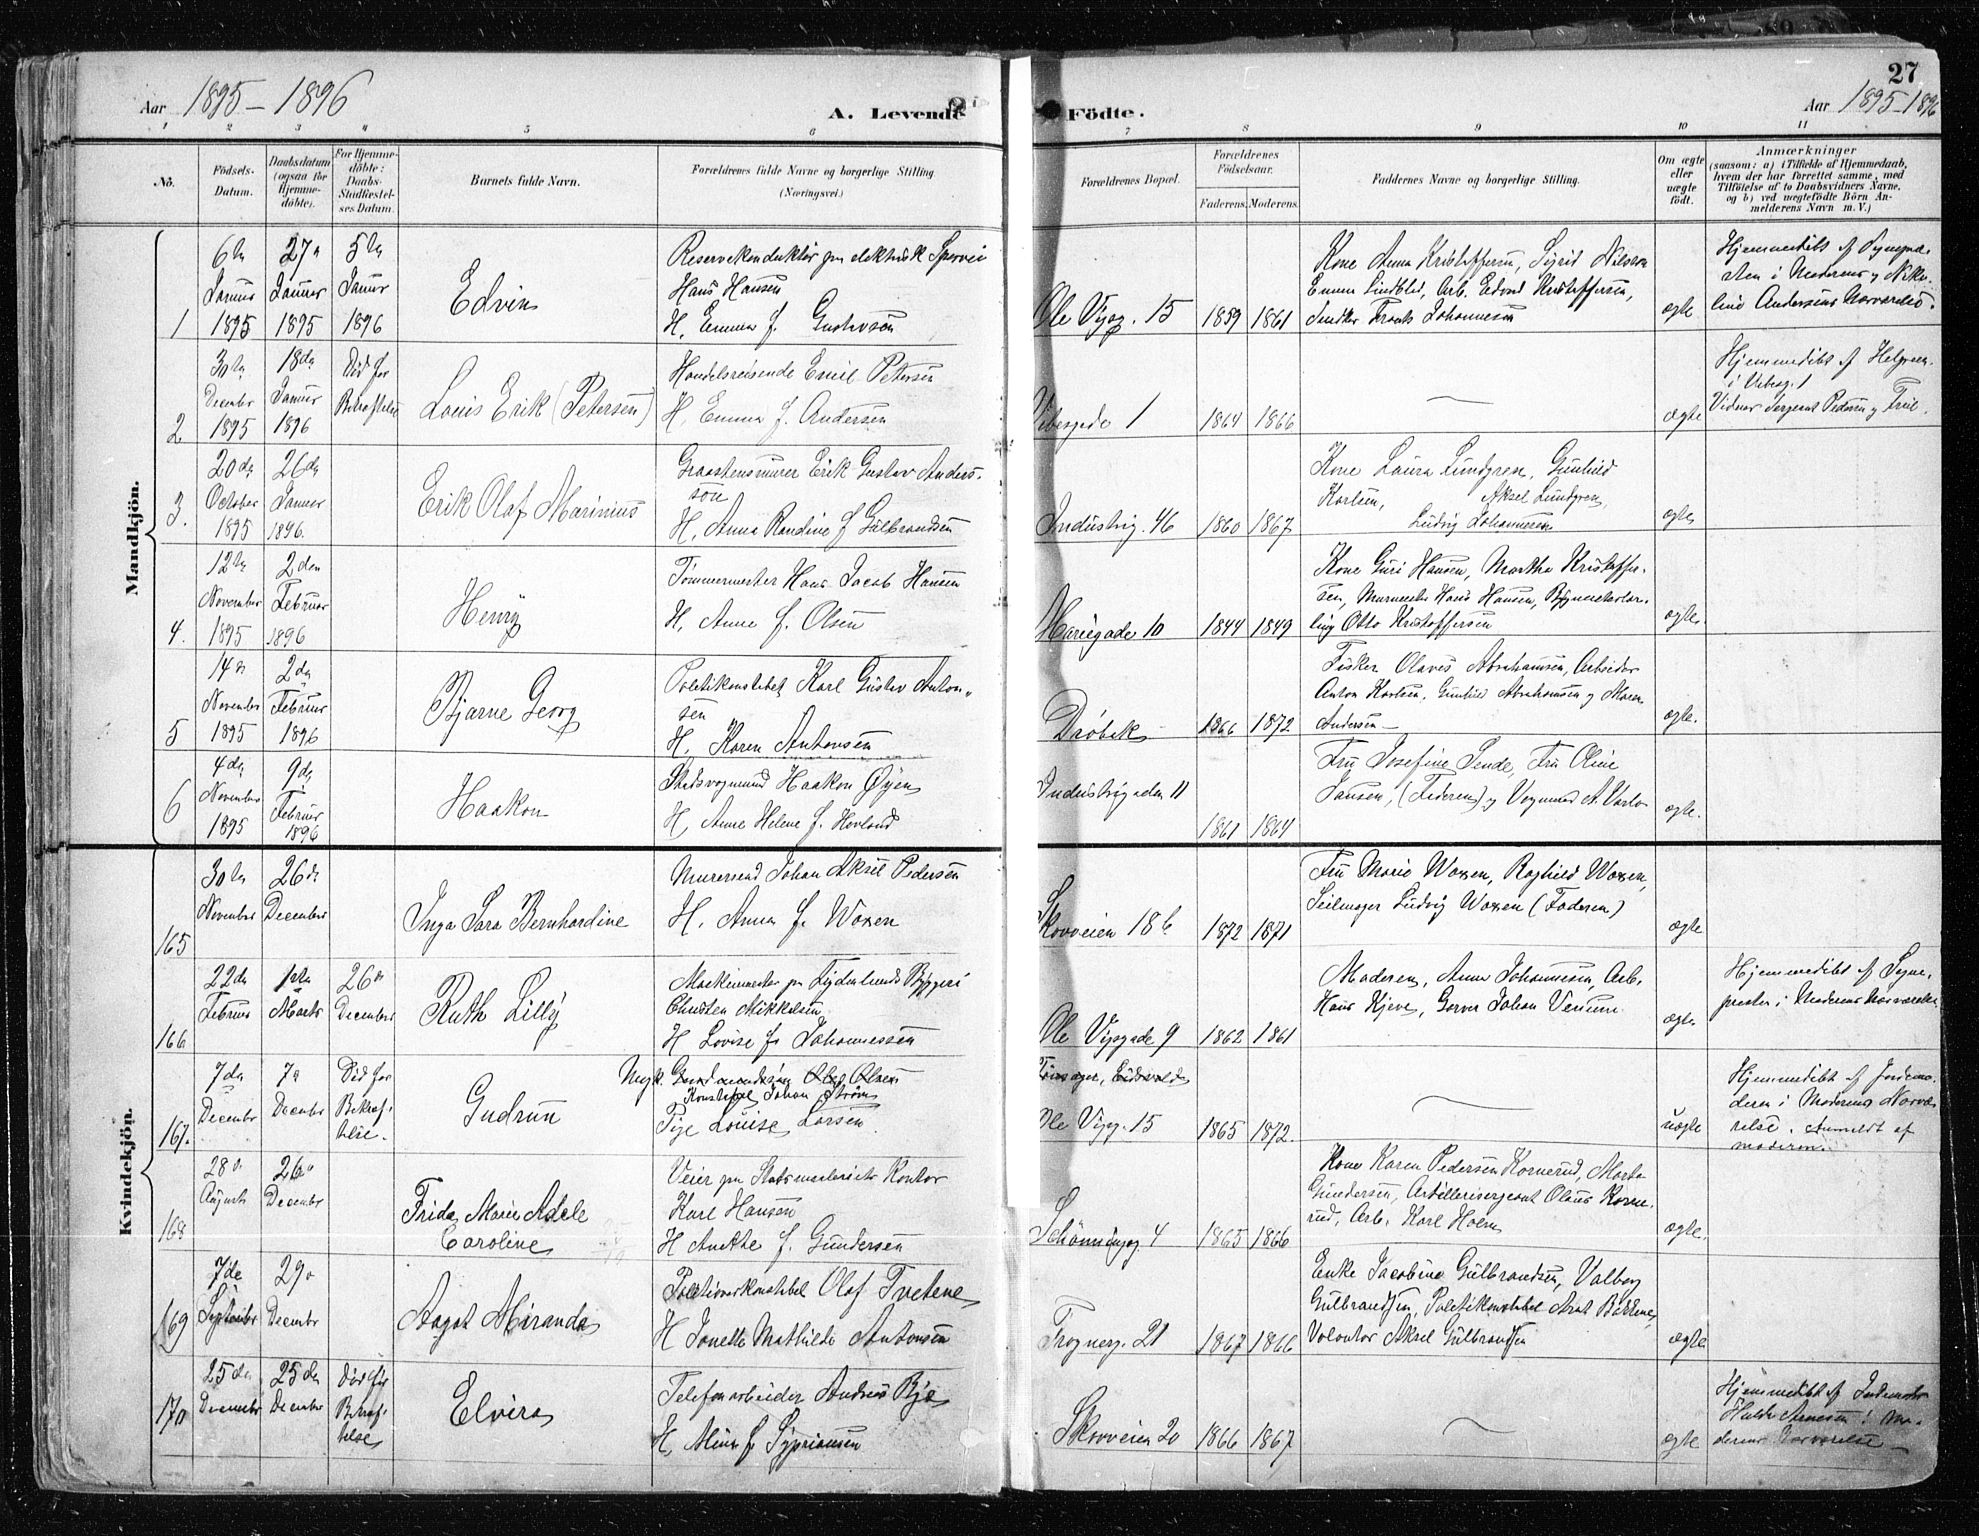 27
Aar 1895-1896
A. Levende Födte.
Aar 1895-1896
1 2 3 4 5 6 7 8 9 10 11
No.
Födsels-
Datum.
Daabsdatum
(ogsaa for
Hjemme-
döbte).
For Hjemme-
döbte:
Daabs-
Stadfæstel-
ses Datum.
Barnets fulde Navn.
Forældrenes fulde Navne og borgerlige Stilling
(Næringsvei.)
Forældrenes Bopæl.
Forældrenes
Födselsaar.
Faderens. Moderens.
Faddernes Navne og borgerlige Stilling.
Om ægte
eller
uægte
födt.
Anmærkninger
(saasom: a) i Tilfælde af Hjemmedaab,
hvem der har forrettet samme, med
Tilföielse af to Daabsvidners Navne,
og b) ved uægtefödte Börn An-
melderens Navn m. V.)
Mandkjön.
1
6te
Januar
1895
27de
Januar
1895
5te
Januar
1896
Edvin
Reservekonduktør paa elektrisk Sporvei
Hans Hansen
H. Emma f. Gustavsen
Ole Vigsg. 15
1859 1861
Kone Anna Kristoffersen, Sigrid Nilsson
Emma Lindblad, Arb. Edvard Kristoffersen,
Snedker Frants Johannesen
ægte
Hjemmedøbt af
i Moderens og
Andersens Nærværelse.
2
30te
December
1895
18de
Januar
1896
Død før
Bekræftelse
Louis Erik (Petersen)
Handelsreisende Emil Petersen
H. Emma f. Andersen
Vibesgade 1
1864 1866
—
ægte
Hjemmedøbt af
i Vibesg. 1
Vidner Sergeant Pedersen og
3.
20de
October
1895
26de
Januar
1896.
Erik Olaf Marinius
Graastensmurer Erik Gustav Anders-
son
H. Anna Randine f. Gulbrandsen
Industrig. 46
1860 1867
Kone Laura Lundgren, Gunhild
Karlsen, Aksel Lundgren,
Ludvig Johannesen
ægte
4.
12te
November
1895
2den
Februar
1896
Henry
Tømmermester Hans Jacob Hansen
H. Anne f. Olsen
Mariegade 10
1844 1849
Kone Guri Hansen, Martha Kristoffer-
sen, Murmester Hans Hansen, Bygmesterlær-
ling Otto Kristoffersen
ægte.
5
14de
November
1895
2den
Februar
1896
Bjarne Georg
Politikonstabel Karl Gustav Anton-
sen
H. Karen Antonsen
Drøbak
1866 1872
Fisker Olaves Abrahamsen, Arbeider
Anton Karlsen, Gunhild Abrahamsen og Maren
Andersen —
ægte.
6
4de
November
1895
9de
Februar
1896
Haakon
Stadsvognmand Haakon Øyen
H. Anne Helene f. Hovland
Industrigaden 11
1861 1864
Fru Josefine Sende, Fru Oline
Jansen, (Faderen) og Vognmand A.
ægte.
Kvindekjön.
165
30te
November
26de
December
Inga Sara Bernhardine
Murersvend Johan Aksel Pedersen
H. Anna f. Woxen
Skovveien 18 b.
1872 1871
Fru Marie Woxen, Ragnhild Woxen,
Seilmager Ludvig Woxen (Faderen)
ægte
166
22de
Februar
1ste
Marts
26de
December
Ruth Lilly
Maskinmester paa Frydenlunds Bryggeri
Christen Mikkelsen
H Lovise f. Johannessen
Ole Vigsgade 9
1862 1861
Moderen, Anna Johannesen, Arb.
Hans Kjeve, Garver Johan
ægte
Hjemmedøbt af Sogne-
presten i Moderens Nærværelse
167.
7de
December
7de
December
Død før
Bekræf-
telse.
Gudrun
Ole Olsen
Konstabel Johan Strøm
Pige Louise Larsen
Eidsvold
Ole Vigsg. 15
1865 1872.
—
uægte
Hjemmedøbt af Jordemo-
deren i Moderens Nærvæ-
relse. Anmeldt af
moderen.
168
28de
August
26de
December
Frida Marie Adele
Caroline
Veier paa Kontor
Karl Hansen
H Anethe f. Gundersen
Schönningsg. 4
1865 1866
Kone Karen Pedersen Kornerud, Marta
Gundersen, Artillerisergeant Olaus Korne-
rud, Arb. Karl Holm
ægte.
169
7de
September
29de
December
Aagot Miranda
Politioverkonstabel Olaf Tvetene
H Janette Mathilde Antonsen
Frognerg. 21
1867 1866
Enke Jacobine Gulbrandsen, Valborg
Gulbrandsen, Politikonstabel
Volontør Aksel Gulbrandsen
ægte
170
25de
December
25de
December
Død før
Bekræf-
telse
Elvira
Telefonarbeider Andreas Bjø
H. Alma f. Sypriansen
Skovveien 20
1866 1867
—
ægte
Hjemmedøbt af Jordemoder
Hulda Arnesen i Mo-
derens Nærværelse —